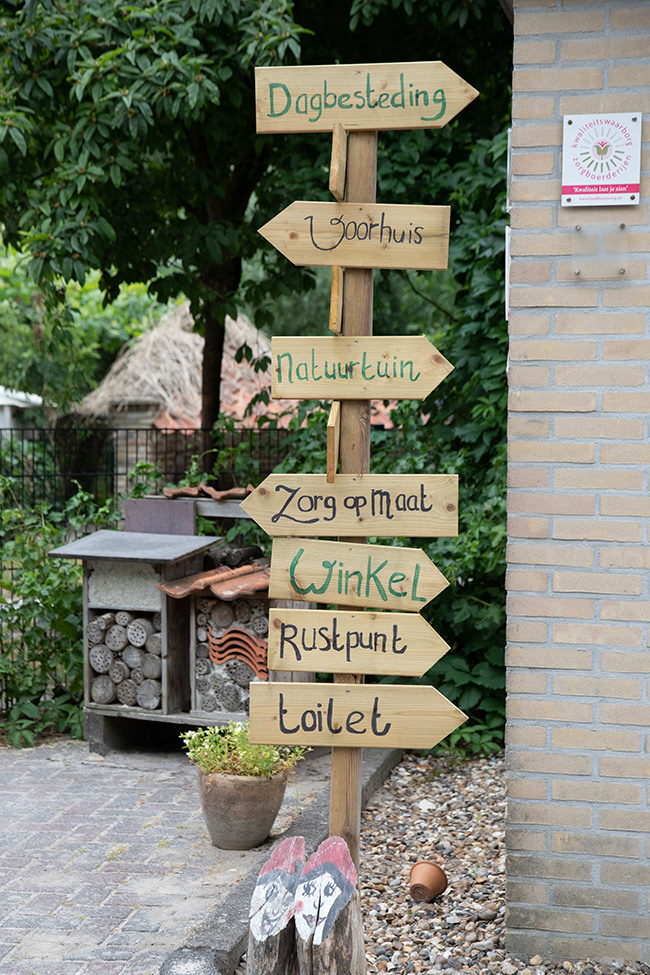 Dagbesteding
Voorhuis
Natuurtuin
Zorg op Maat
Winkel
Rustpunt
toilet
kwaliteitswaarborg
zorgboerderijen
"Kwaliteit laat je zien"